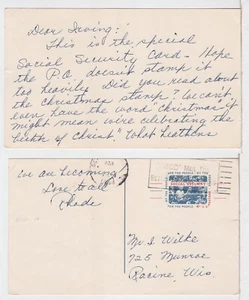 Dear Irving:
This is the special
Social Security Card - Hope
the P.O. doesnt stamp it
too heavily. Did you read about
the Christmas stamp? We can't
even have the word "Christmas", it
might mean we're celebrating the
"birth of Christ". What heathens
we are becoming
Love to all
Rhode
SOCIAL SECURITY
Mr. I. Wilke
725 Munroe
Racine, Wis.